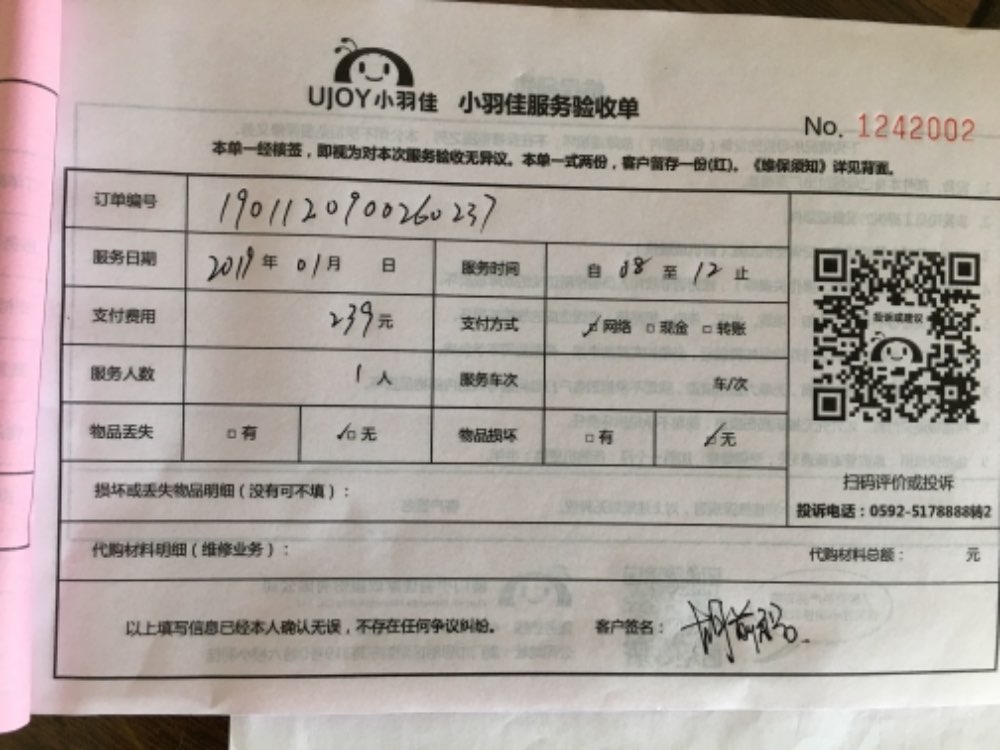 UJOY小羽佳 小羽佳服务验收单
No. 1242002
本单一经核签，即视为对本次服务验收无异议。本单一式两份，客户留存一份(红)。《维保须知》详见背面。
订单编号 1901120900260237
服务日期 2019年 01月 日 服务时间 自 08 至 12 止
支付费用 239元 支付方式 ☑网络 □现金 □转账
投诉或建议
服务人数 1人 服务车次 车/次
物品丢失 □有 ☑无 物品损坏 □有 ☑无
扫码评价或投诉
损坏或丢失物品明细（没有可不填）：
投诉电话：0592-5178888转2
代购材料明细（维修业务）： 代购材料总额： 元
以上填写信息已经本人确认无误，不存在任何争议纠纷。 客户签名：